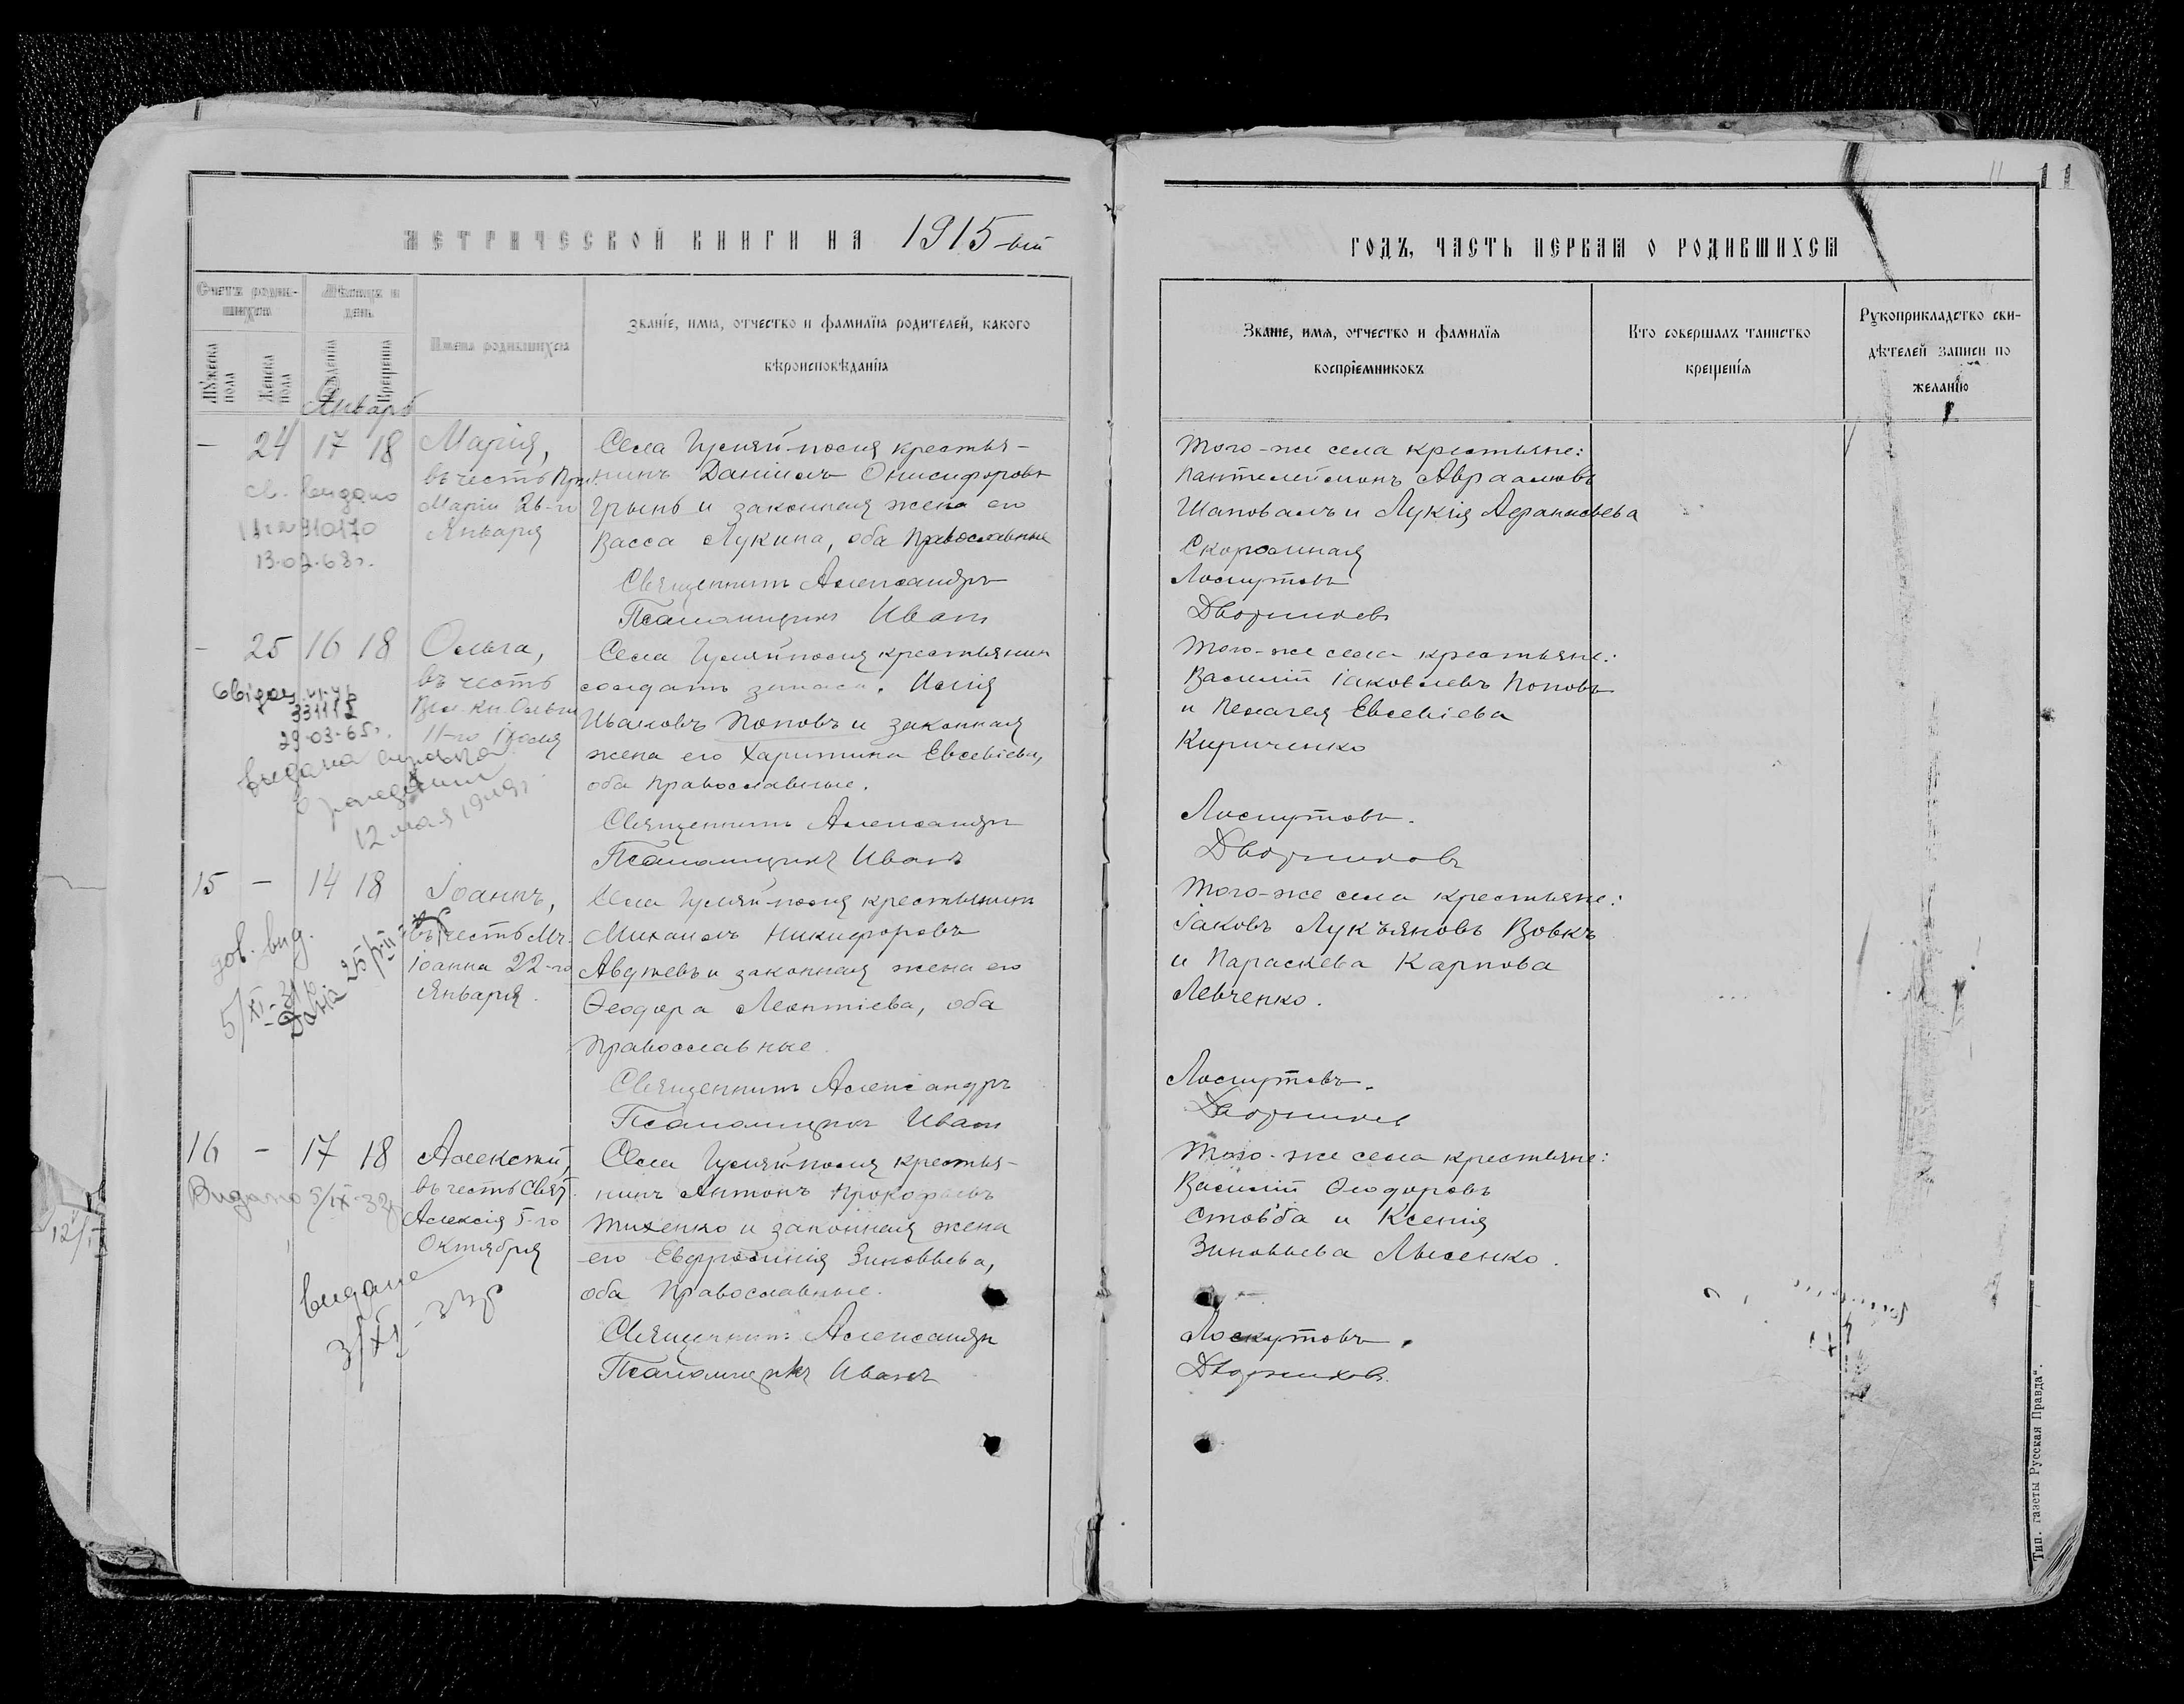 МЕТРИЧЕСКОЙ КНИГИ НА 1915-ый
Счетъ родив-
шихся
Мѣсяцъ и
день
Мужеска
пола
Женска
пола
Рожденія
Крещенія
Имена родившихся
Званіе, имя, отчество и фамилія родителей, какого
вѣроисповѣданія
Январь
— 24 17 18 Марія,
въ честь Прп.
Маріи 26-го
Января
св. видано
910170
13.02.68г.
Села Гуляй-поля крестья-
нинъ Даніилъ Онисифоровъ
Грынь и законная жена его
Васса Лукина, оба православные
Священникъ Александръ
Псаломщикъ Иванъ
- 25 16 18 Ольга,
въ честь
Вел. Кн. Ольги
11-го Іюля
331112
29.03.65г.
выдана справка
о рождении
12 мая 1949г.
Села Гуляй-поля крестьянинъ
солдатъ запаса. Илія
Ивановъ Поповъ и законная
жена его Харитина Евсевіева,
оба православные.
Священникъ Александръ
Псаломщикъ Иванъ
15 — 14 18 Іоаннъ,
въ честь Мч.
Іоанна 22-го
Января.
дов. вид.
Села Гуляй-поля крестьянинъ
Михаилъ Никифоровъ
Авдѣевъ и законная жена его
Ѳеодора Леонтіева, оба
православные.
Священникъ Александръ
Псаломщикъ Иванъ
16 — 17 18 Алексѣй,
въ честь Свят.
Алексія 5-го
Октября
Видано 5/IX-32
видане
3/XI - 33р
12/
Села Гуляй-поля крестья-
нинъ Антонъ Прокофьевъ
Тихенко и законная жена
его Евфросинія Зиновьева,
оба православные.
Священникъ Александръ
Псаломщикъ Иванъ
11 11
ГОДЪ, ЧАСТЬ ПЕРВАЯ О РОДИВШИХСЯ
Званіе, имя, отчество и фамилія
воспріемниковъ
Кто совершалъ таинство
крещенія
Рукоприкладство сви-
дѣтелей записи по
желанію
Того-же села крестьяне:
Пантелеймонъ Авраамовъ
Шаповалъ и Лукія Афанасьева
Скоромная
Лоскутовъ
Дворниковъ
Того-же села крестьяне:
Василій Іаковлевъ Поповъ
и Пелагея Евсевіева
Кириченко
Лоскутовъ.
Дворниковъ
Того-же села крестьяне:
Іаковъ Лукъяновъ Вовкъ
и Параскева Карпова
Левченко.
Лоскутовъ.
Дворниковъ
Того-же села крестьяне:
Василій Ѳеодоровъ
Стовба и Ксенія
Зиновьева Лысенко.
Лоскутовъ.
Дворниковъ.
Тип. газеты „Русская Правда“.